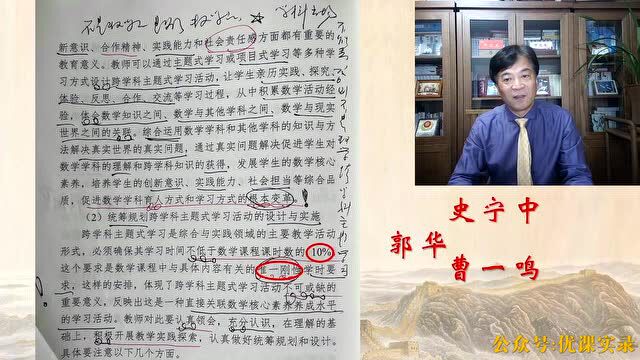 新意识、合作精神、实践能力和社会责任感方面都有重要的
教育意义。教师可以通过主题式学习或项目式学习等多种学
习方式设计跨学科主题式学习活动，让学生亲历实践、探究、
体验、反思、合作、交流等学习过程，从中积累数学活动经
验，体会数学知识之间、数学与其他学科之间、数学与现实
世界之间的关联，综合运用数学学科和其他学科的知识与方
法解决真实世界的真实问题，通过真实问题解决促进学生对
数学学科的理解和跨学科知识的获得，发展学生的数学核心
素养，培养学生的创新意识、实践能力、社会担当等综合品
质，促进数学学科育人方式和学习方式的根本变革。
（2）统筹规划跨学科主题式学习活动的设计与实施
跨学科主题式学习是综合与实践领域的主要教学活动
形式，必须确保其学习时间不低于数学课程课时数的10%，
这个要求是数学课程中与具体内容有关的唯一刚性学时要
求，这样的安排，体现了跨学科主题式学习活动不可或缺的
重要意义，反映出这是一种直接关联数学核心素养养成水平
的学习活动。教师对此要认真领会，充分认识，在理解的基
础上，积极开展教学实践探索，认真做好统筹规划和设计。
具体要注意以下几个方面。
史宁中
郭华
曹一鸣
公众号:优课实录